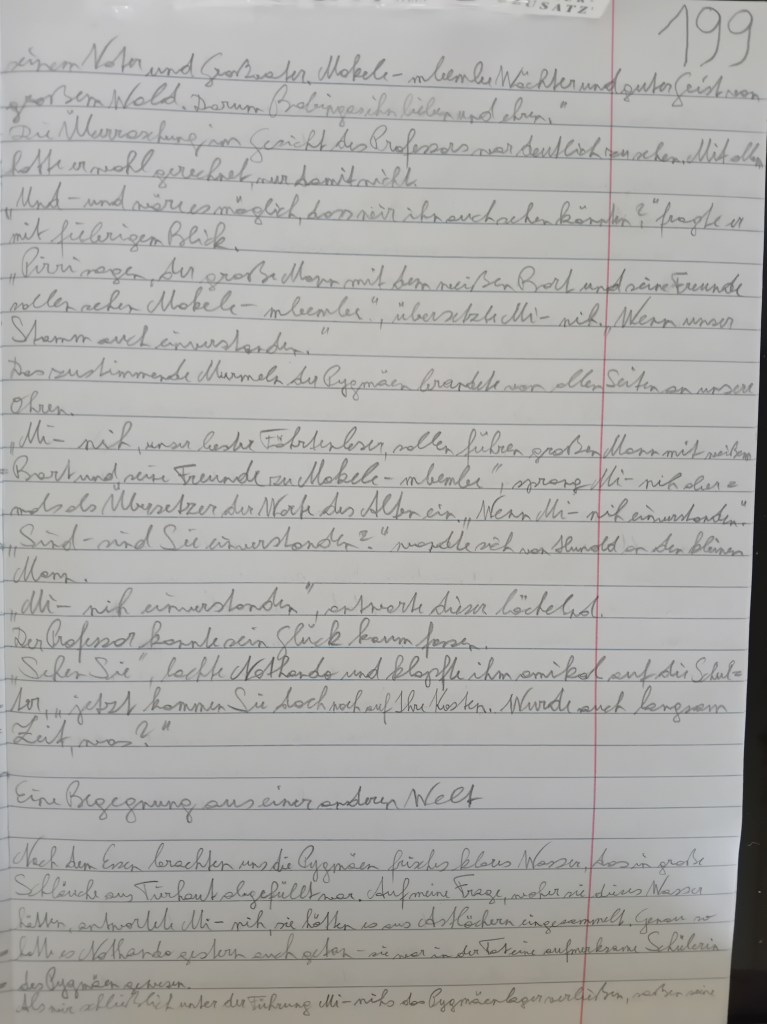 USATZ
199
seinem Vater und Großvater. Mokele-mbembe Wächter und guter Geist von
großem Wald. Darum Babingas ihn lieben und ehren."
Die Überraschung im Gesicht des Professors war deutlich zu sehen. Mit allem
hatte er wohl gerechnet, nur damit nicht.
„Und – und wäre es möglich, dass wir ihn auch sehen könnten?" fragte er
mit fiebrigem Blick.
„Pirri sagen, der große Mann mit dem weißen Bart und seine Freunde
sollen sehen Mokele-mbembe", übersetzte Mi-nih. „Wenn unser
Stamm auch einverstanden."
Das zustimmende Murmeln der Pygmäen brandete von allen Seiten an unsere
Ohren.
„Mi-nih, unser bester Fährtenleser, sollen führen großen Mann mit weißem
Bart und seine Freunde zu Mokele-mbembe", sprang Mi-nih aber=
mals als Übersetzer der Worte des Alten ein. „Wenn Mi-nih einverstanden".
„Sind – sind Sie einverstanden?" wandte sich von Hunold an den kleinen
Mann.
„Mi-nih einverstanden", antworte dieser lächelnd.
Der Professor konnte sein Glück kaum fassen.
„Sehen Sie", lachte Nothando und klopfte ihm amikal auf die Schul=
ter, „jetzt kommen Sie doch noch auf Ihre Kosten. Wurde auch langsam
Zeit, was?"
Eine Begegnung aus einer anderen Welt
Nach dem Essen brachten uns die Pygmäen frisches klares Wasser, das in große
Schläuche aus Tierhaut abgefüllt war. Auf meine Frage, woher sie dieses Wasser
hätten, antwortete Mi-nih, sie hätten es aus Astlöchern eingesammelt. Genau so
hatte es Nothando gestern auch getan – sie war in der Tat eine aufmerksame Schülerin
des Pygmäen gewesen.
Als wir schließlich unter der Führung Mi-nihs das Pygmäenlager verließen, saßen seine